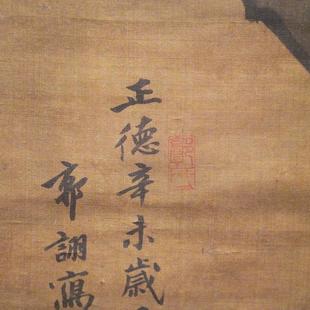 正德辛未歲
郭詡寫